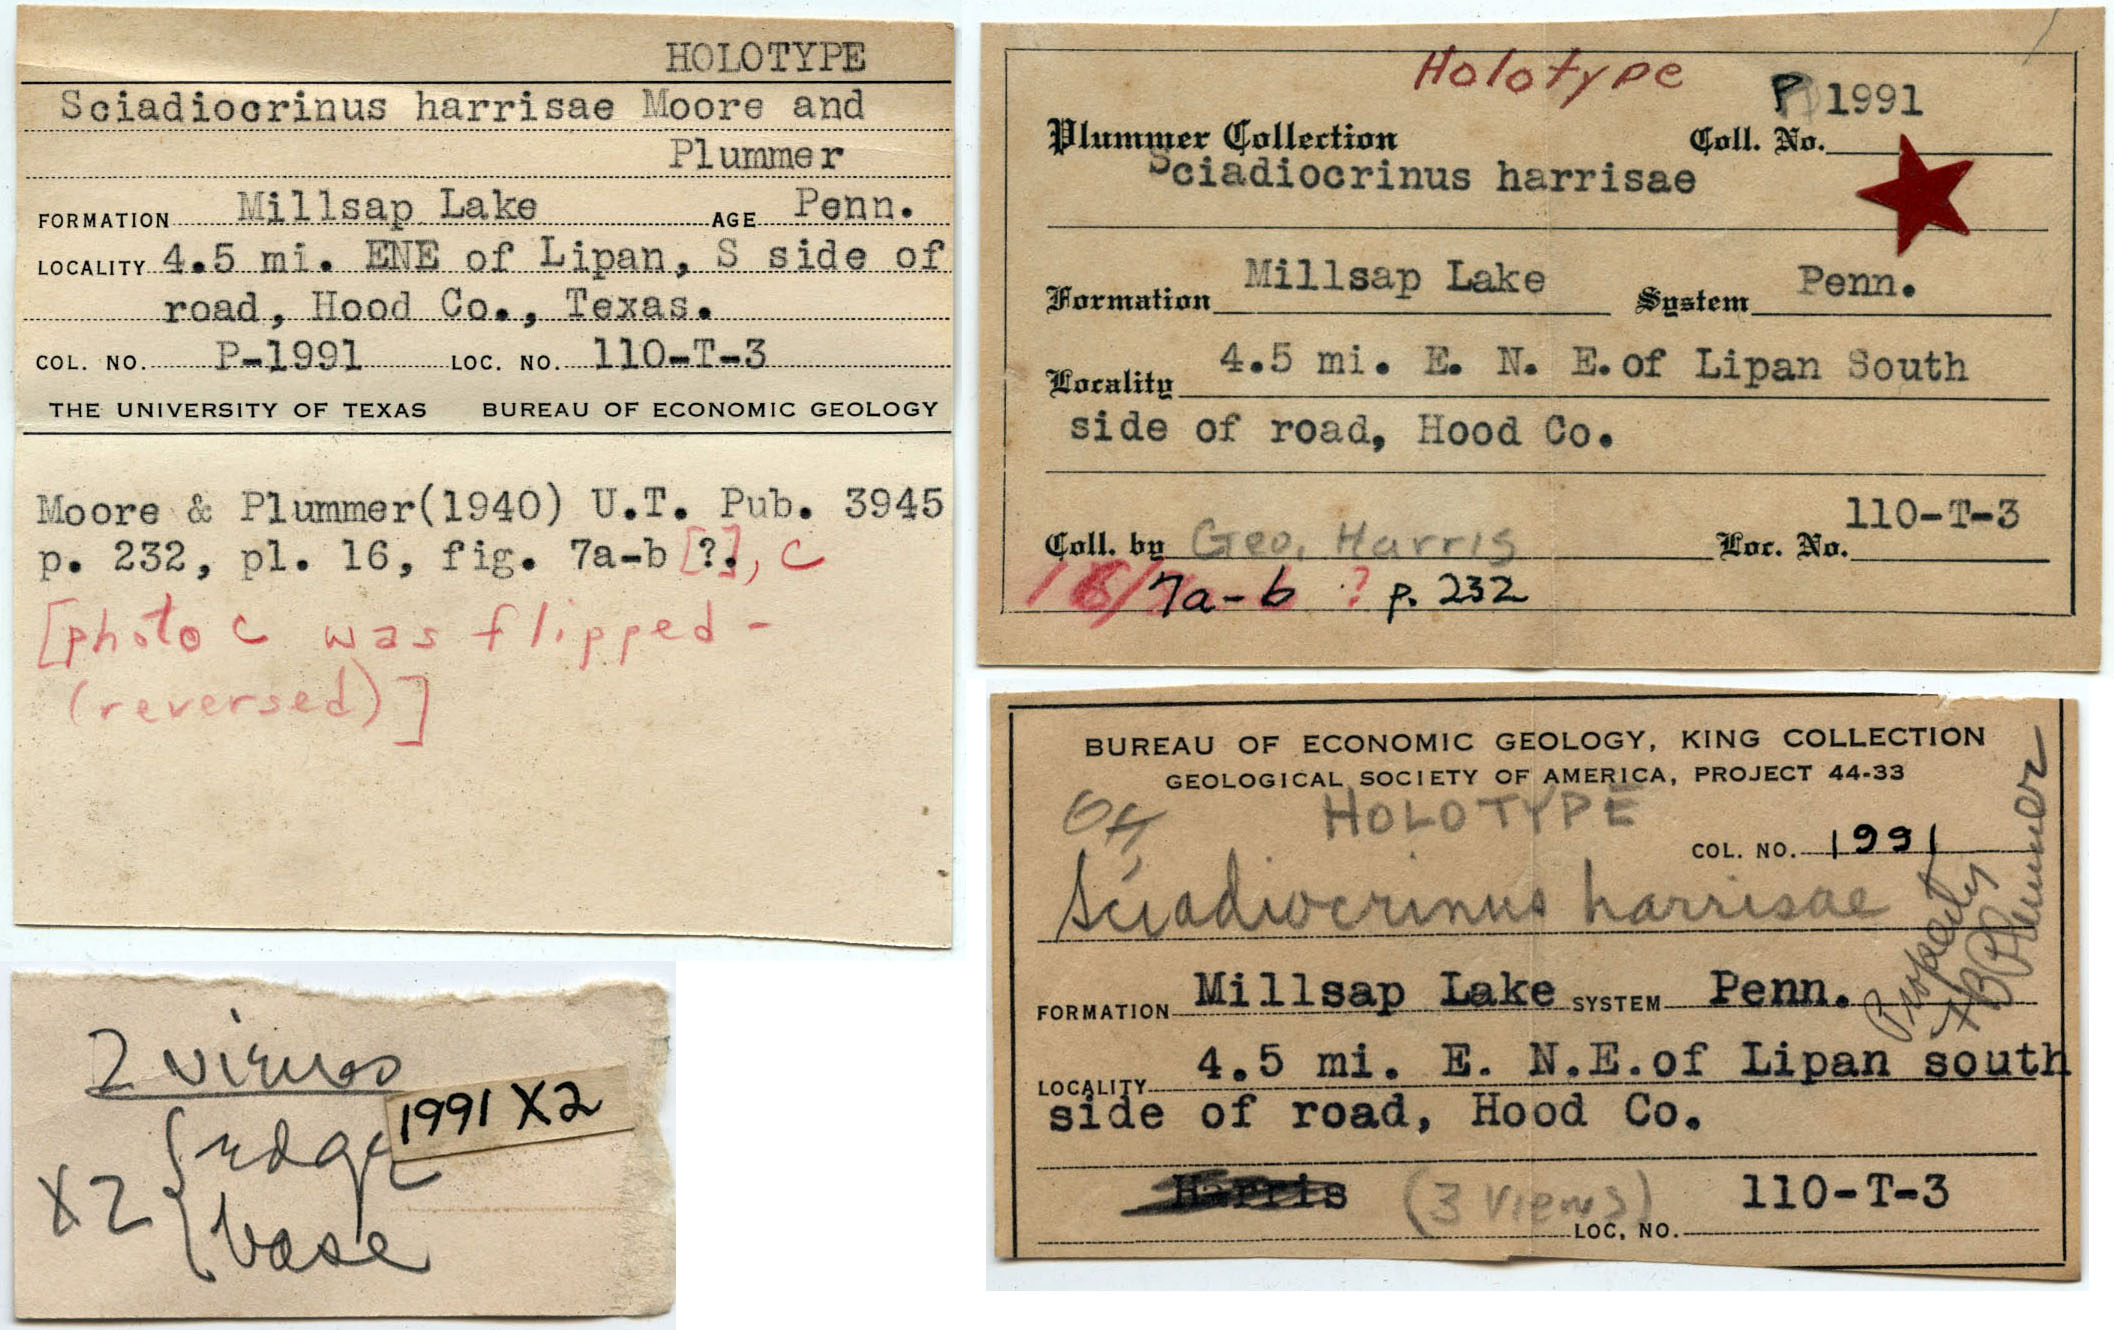 HOLOTYPE
Sciadiocrinus harrisae Moore and
Plummer
FORMATION Millsap Lake AGE Penn.
LOCALITY 4.5 mi. ENE of Lipan, S side of
road, Hood Co., Texas.
COL. NO. P-1991 LOC. NO. 110-T-3
THE UNIVERSITY OF TEXAS BUREAU OF ECONOMIC GEOLOGY
Moore & Plummer(1940) U.T. Pub. 3945
p. 232, pl. 16, fig. 7a-b [?], c
[photo c was flipped -
(reversed)]
Holotype
P 1991
Plummer Collection Coll. No.
Sciadiocrinus harrisae
Formation Millsap Lake System Penn.
Locality 4.5 mi. E. N. E. of Lipan South
side of road, Hood Co.
Coll. by Geo. Harris Loc. No. 110-T-3
16/7a-b ? p. 232
BUREAU OF ECONOMIC GEOLOGY, KING COLLECTION
GEOLOGICAL SOCIETY OF AMERICA, PROJECT 44-33
HOLOTYPE
COL. NO. 1991
Sciadiocrinus harrisae
Property
FB Plummer
FORMATION Millsap Lake SYSTEM Penn.
LOCALITY 4.5 mi. E. N.E. of Lipan south
side of road, Hood Co.
Harris (3 views) LOC. NO. 110-T-3
2 views
1991 X2
X2 { edge
base